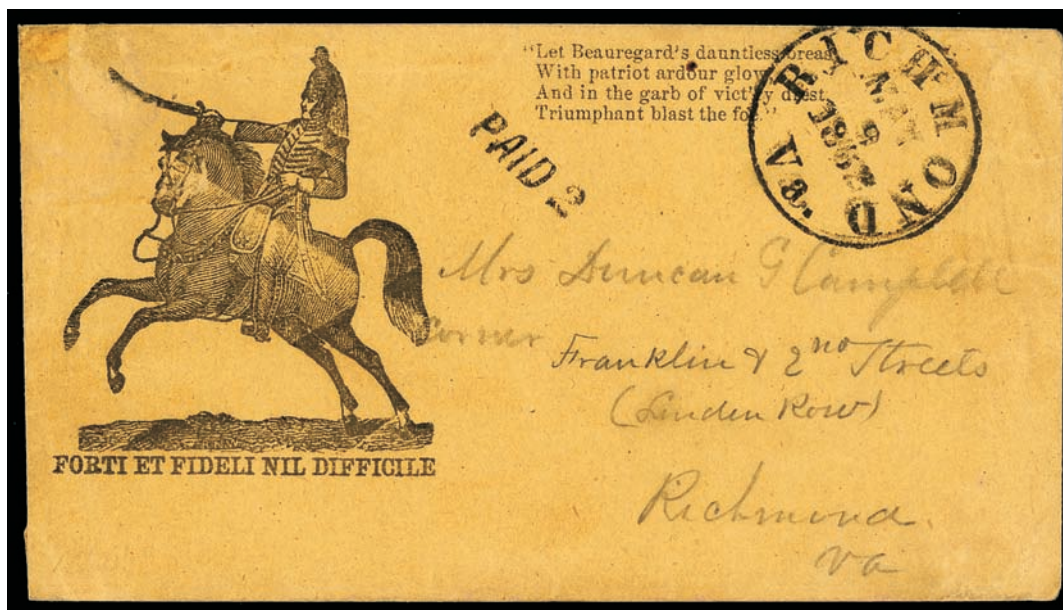 "Let Beauregard's dauntless breas
With patriot ardour glow,
And in the garb of vict'ry drest,
Triumphant blast the foe."
PAID 2
RICHMOND VA.
MAY
1862
Mrs Duncan G Campbell
Corner Franklin & 2nd Streets
(Linden Row)
Richmond.
Va
FORTI ET FIDELI NIL DIFFICILE